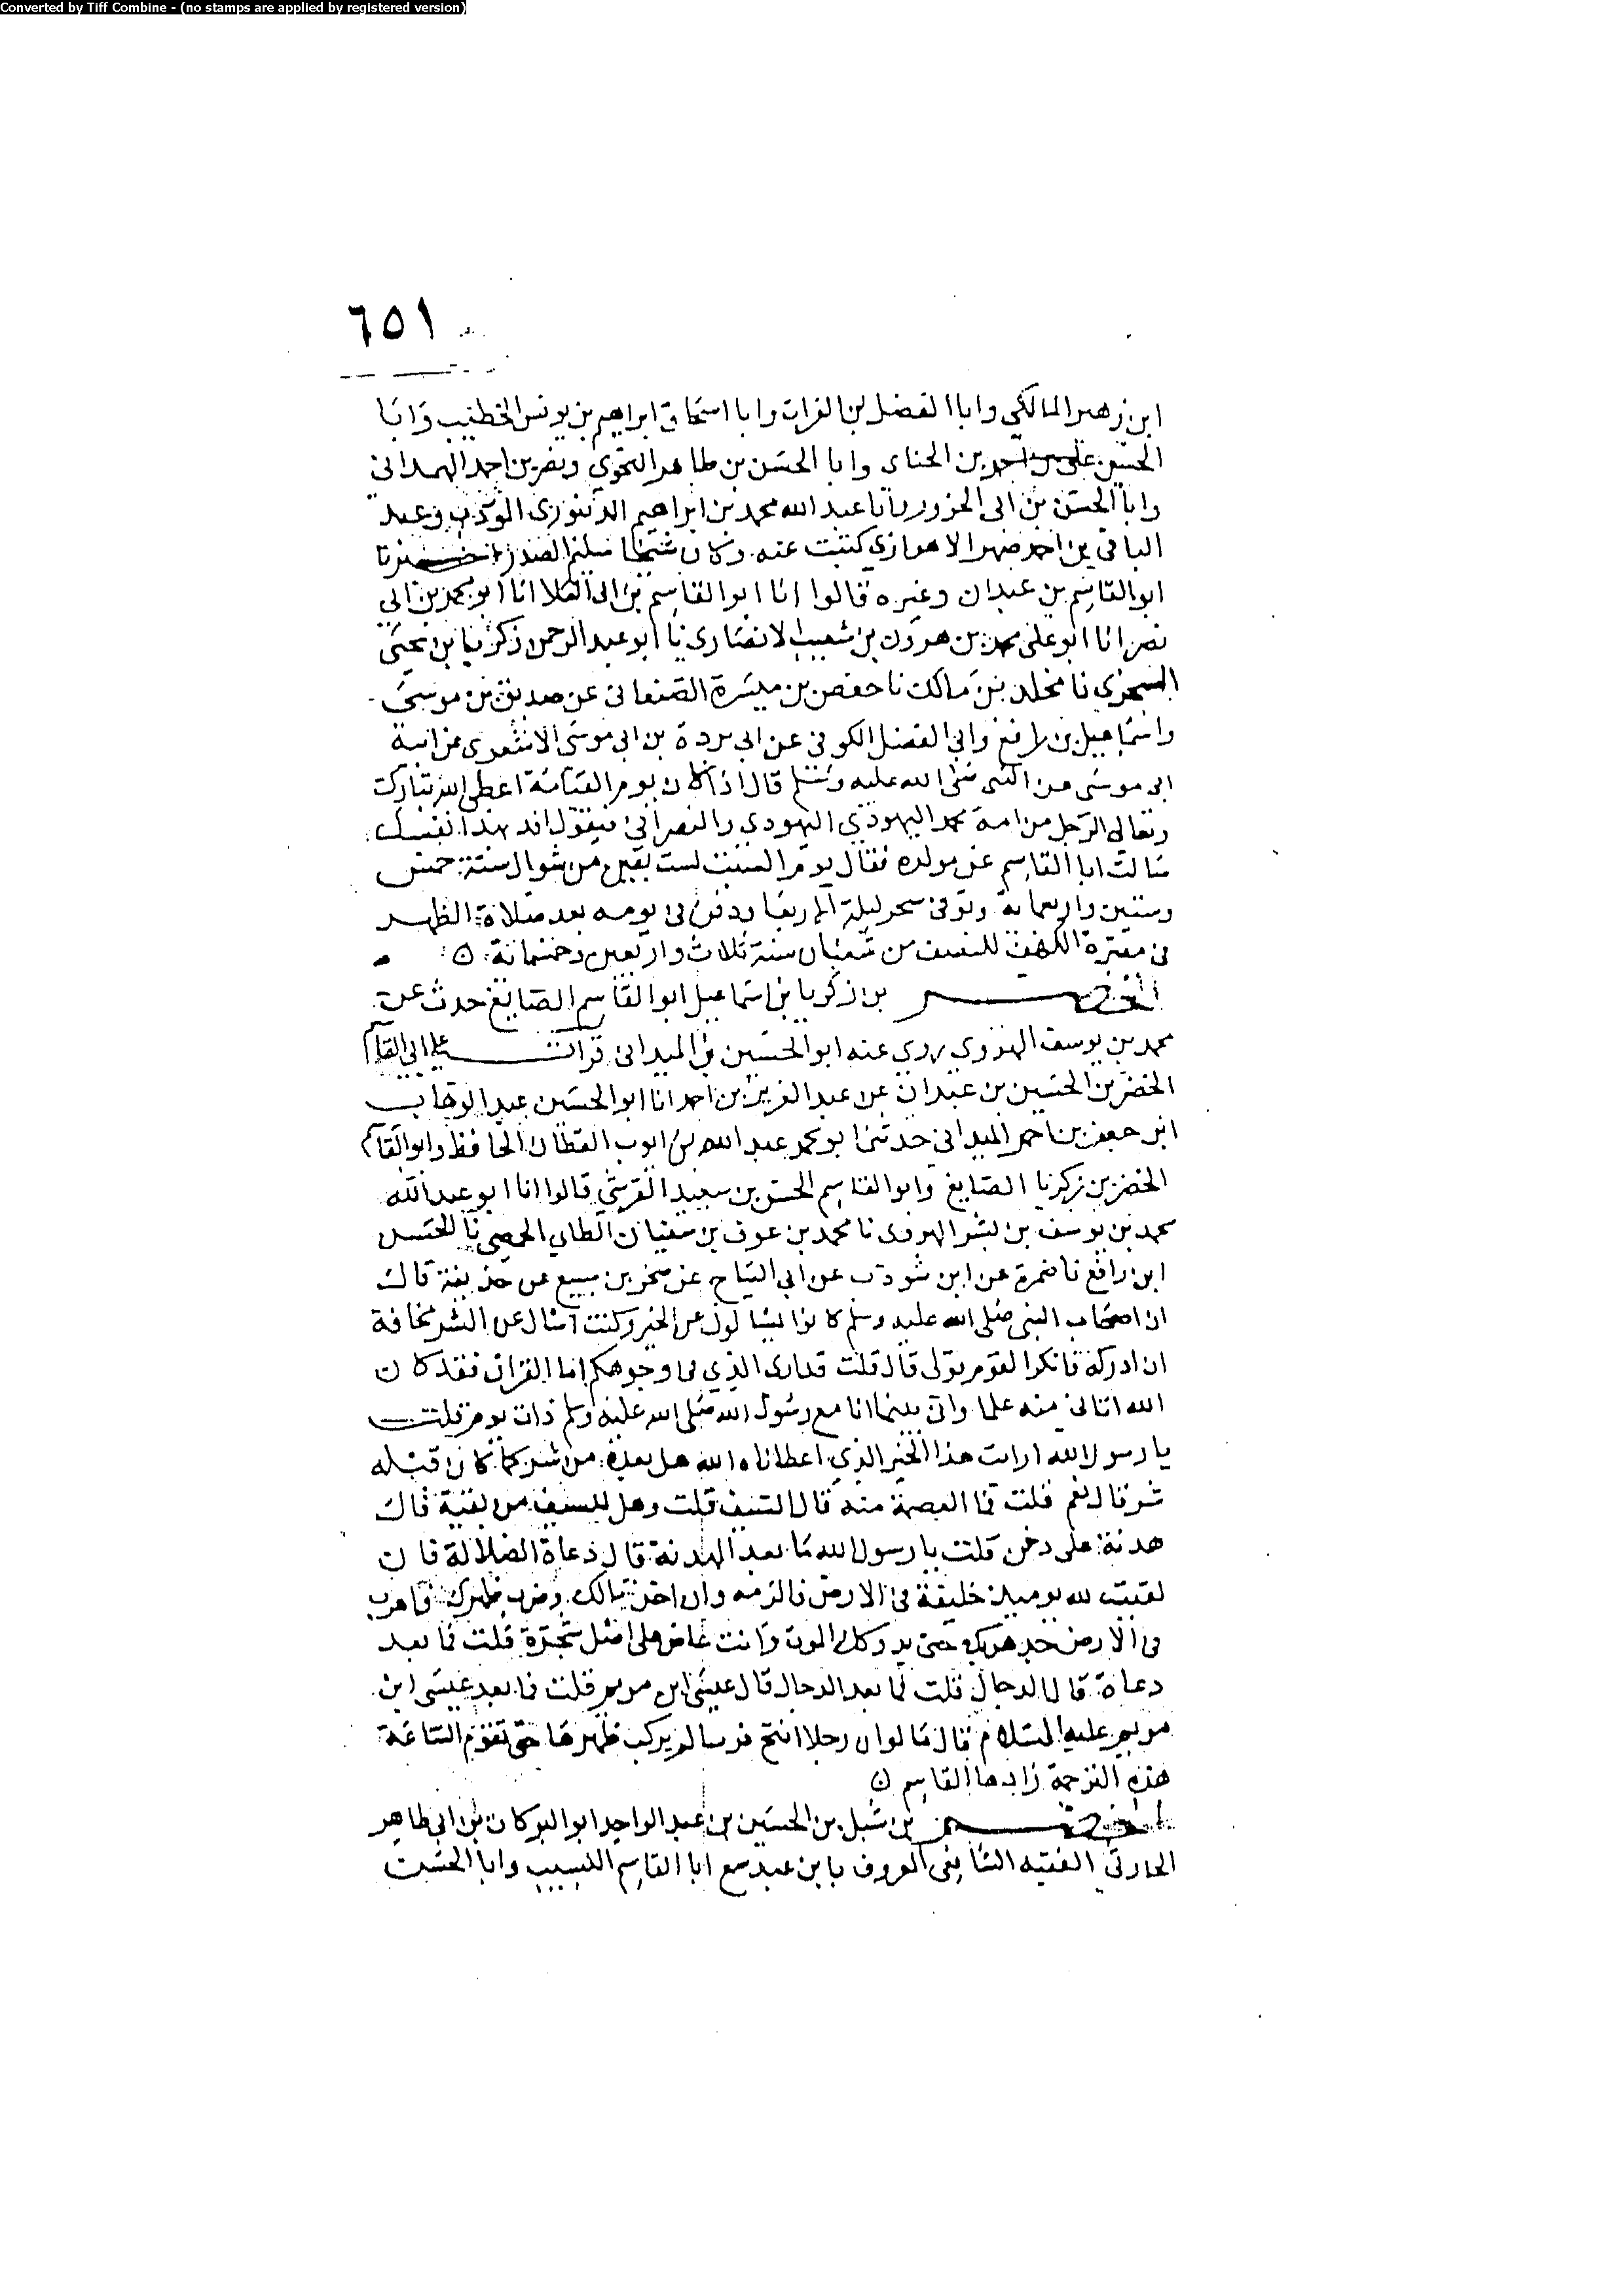 Converted by Tiff Combine - (no stamps are applied by registered version)
٦٥١
ابن زهير المالكي وابا الفضل بن الفرات وابا اسحاق ابراهيم بن يونس الخطيب وابا
الحسن علي بن احمد بن الحناي وابا الحسن بن طاهر النحوي ونصر بن احمد الهمداني
وابا الحسن بن ابي الحزور وابا عبد الله محمد بن ابراهيم الدينوري المودب وعبد
الباقي بن احمد صهر الاهوازي كتبت عنه وكان شيخا سليم الصدر اخبرنا
ابو القاسم بن عبدان وغيره قالوا انا ابو القاسم بن ابي العلا انا ابو محمد بن ابي
نصر انا ابو علي محمد بن هرون بن شعيب الانصاري نا ابو عبد الرحمن زكريا بن يحيى
السجزي نا مخلد بن مالك نا حفص بن ميسرة الصنعاني عن صديق بن موسى
واسماعيل بن رافع وابي الفضل الكوفي عن ابي بردة بن ابي موسى الاشعري عن ابيه
ابي موسى عن النبي صلى الله عليه وسلم قال اذا كان يوم القيامة اعطى الله تبارك
وتعالى الرجل من امة محمد اليهودي اليهودي والنصراني فيقول افد بهذا نفسك
سالت ابا القاسم عن مولده فقال يوم السبت لست بقين من شوال سنة خمس
وستين واربعمايه وتوفي سحر ليلة الاربعا ودفن في يومه بعد صلاة الظهر
في مقبرة الكهف للنصف من شعبان سنة ثلاث واربعين وخمسماية ن
الخضر بن زكريا بن اسماعيل ابو القاسم الصايغ حدث عن
محمد بن يوسف الهروي روى عنه ابو الحسين بن الميداني قرات على ابي القاسم
الخضر بن الحسين بن عبدان عن عبد العزيز بن احمد انا ابو الحسين عبد الوهاب
ابن جعفر بن احمد الميداني حدثنا ابو محمد عبد الله بن ايوب القطان الحافظ وابو القاسم
الخضر بن زكريا الصايغ وابو القاسم الحسن بن سعيد القرشي قالوا انا ابو عبد الله
محمد بن يوسف بن بشر الهروي نا محمد بن عوف بن سفيان الطاي الحمصي نا الحسن
ابن رافع نا ضمرة عن ابن شوذب عن ابي التياح عن صخر بن سبيع عن حذيفة قال
ان اصحاب النبي صلى الله عليه وسلم كانوا يسالون عن الخير وكنت اسال عن الشر مخافة
ان ادركه فانكر القوم قولي قال قلت قد ارى الذي في وجوهكم اما القران فقد كان
الله اتاني منه علما واني بينما انا مع رسول الله صلى الله عليه وسلم ذات يوم قلت
يا رسول الله ارايت هذا الخير الذي اعطاناه الله هل بعده من شر كما كان قبله
شر قال نعم قلت فما العصمة منه قال السيف قلت وهل للسيف من بقية قال
هدنة على دخن قلت يا رسول الله ما بعد الهدنة قال دعاة الضلالة فان
لقيت لله يوميذ خليفة في الارض فالزمه وان اخذ مالك وضرب ظهرك فاهرب
في الارض حد هربك حتى يدركك الموت وانت عاض على اصل شجرة قلت فما بعد
دعاة قال الدجال قلت فما بعد الدجال قال عيسى ابن مريم قلت فما بعد عيسى ابن
مريم عليه السلام قال ما لو ان رجلا انتج فرسا لم يركب ظهرها حتى تقوم الساعة
هذه الترجمة زادها القاسم ن
الخضر بن شبل بن الحسين بن عبد الواحد ابو البركات بن ابي طاهر
الحارثي الفقيه الشافعي المعروف بابن عبد سمع ابا القاسم النسيب وابا الحسن